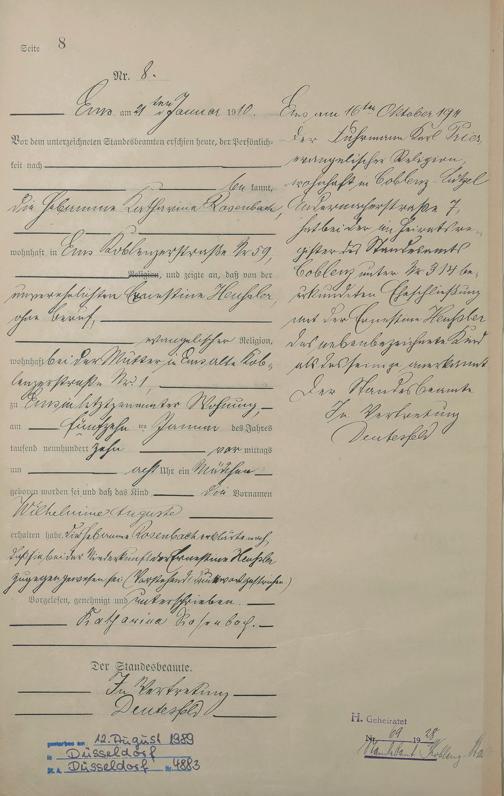 Seite 8
Nr. 8.
Ems, am 21ten Januar 1910.
Vor dem unterzeichneten Standesbeamten erschien heute, der Persönlich-
keit nach
bekannt,
die Hebamme Katharina Rosenbach,
wohnhaft in Ems Koblenzerstraße Nr 59,
Religion, und zeigte an, daß von der
unverehelichten Ernestine Henßler,
ohne Beruf,
evangelischer Religion,
wohnhaft bei der Mutter in Ems alte Kob-
lenzerstraße Nr. 1,
zu Ems in letztgenannter Wohnung,
am fünfzehnten Januar des Jahres
tausend neunhundert zehn vormittags
um acht Uhr ein Mädchen
geboren worden sei und daß das Kind die Vornamen
Wilhelmine Auguste
erhalten habe. Die Hebamme Rosenbach erklärte noch,
daß sie bei der Niederkunft der Ernestine Henßler
zugegen gewesen sei. (Vorstehend 1 Druckwort gestrichen)
Vorgelesen, genehmigt und unterschrieben.
Katharina Rosenbach.
Der Standesbeamte.
In Vertretung
Deutesfeld
Ems, am 16ten Oktober 191
Der Fuhrmann Karl Trier,
evangelischer Religion,
wohnhaft in Coblenz-Lützel
Andernacherstraße 7,
hat bei der im Heiratsre-
gister des Standesamts
Coblenz unter Nr 314 be-
urkundeten Eheschließung
mit der Ernestine Henßler
das nebenbezeichnete Kind
als das seinige anerkannt
Der Standesbeamte
In Vertretung
Deutesfeld
gestorben am 12. August 1989
in Düsseldorf
St. A. Düsseldorf Nr. 4883
H. Geheiratet
Nr. 69 1928
Standesamt Koblenz